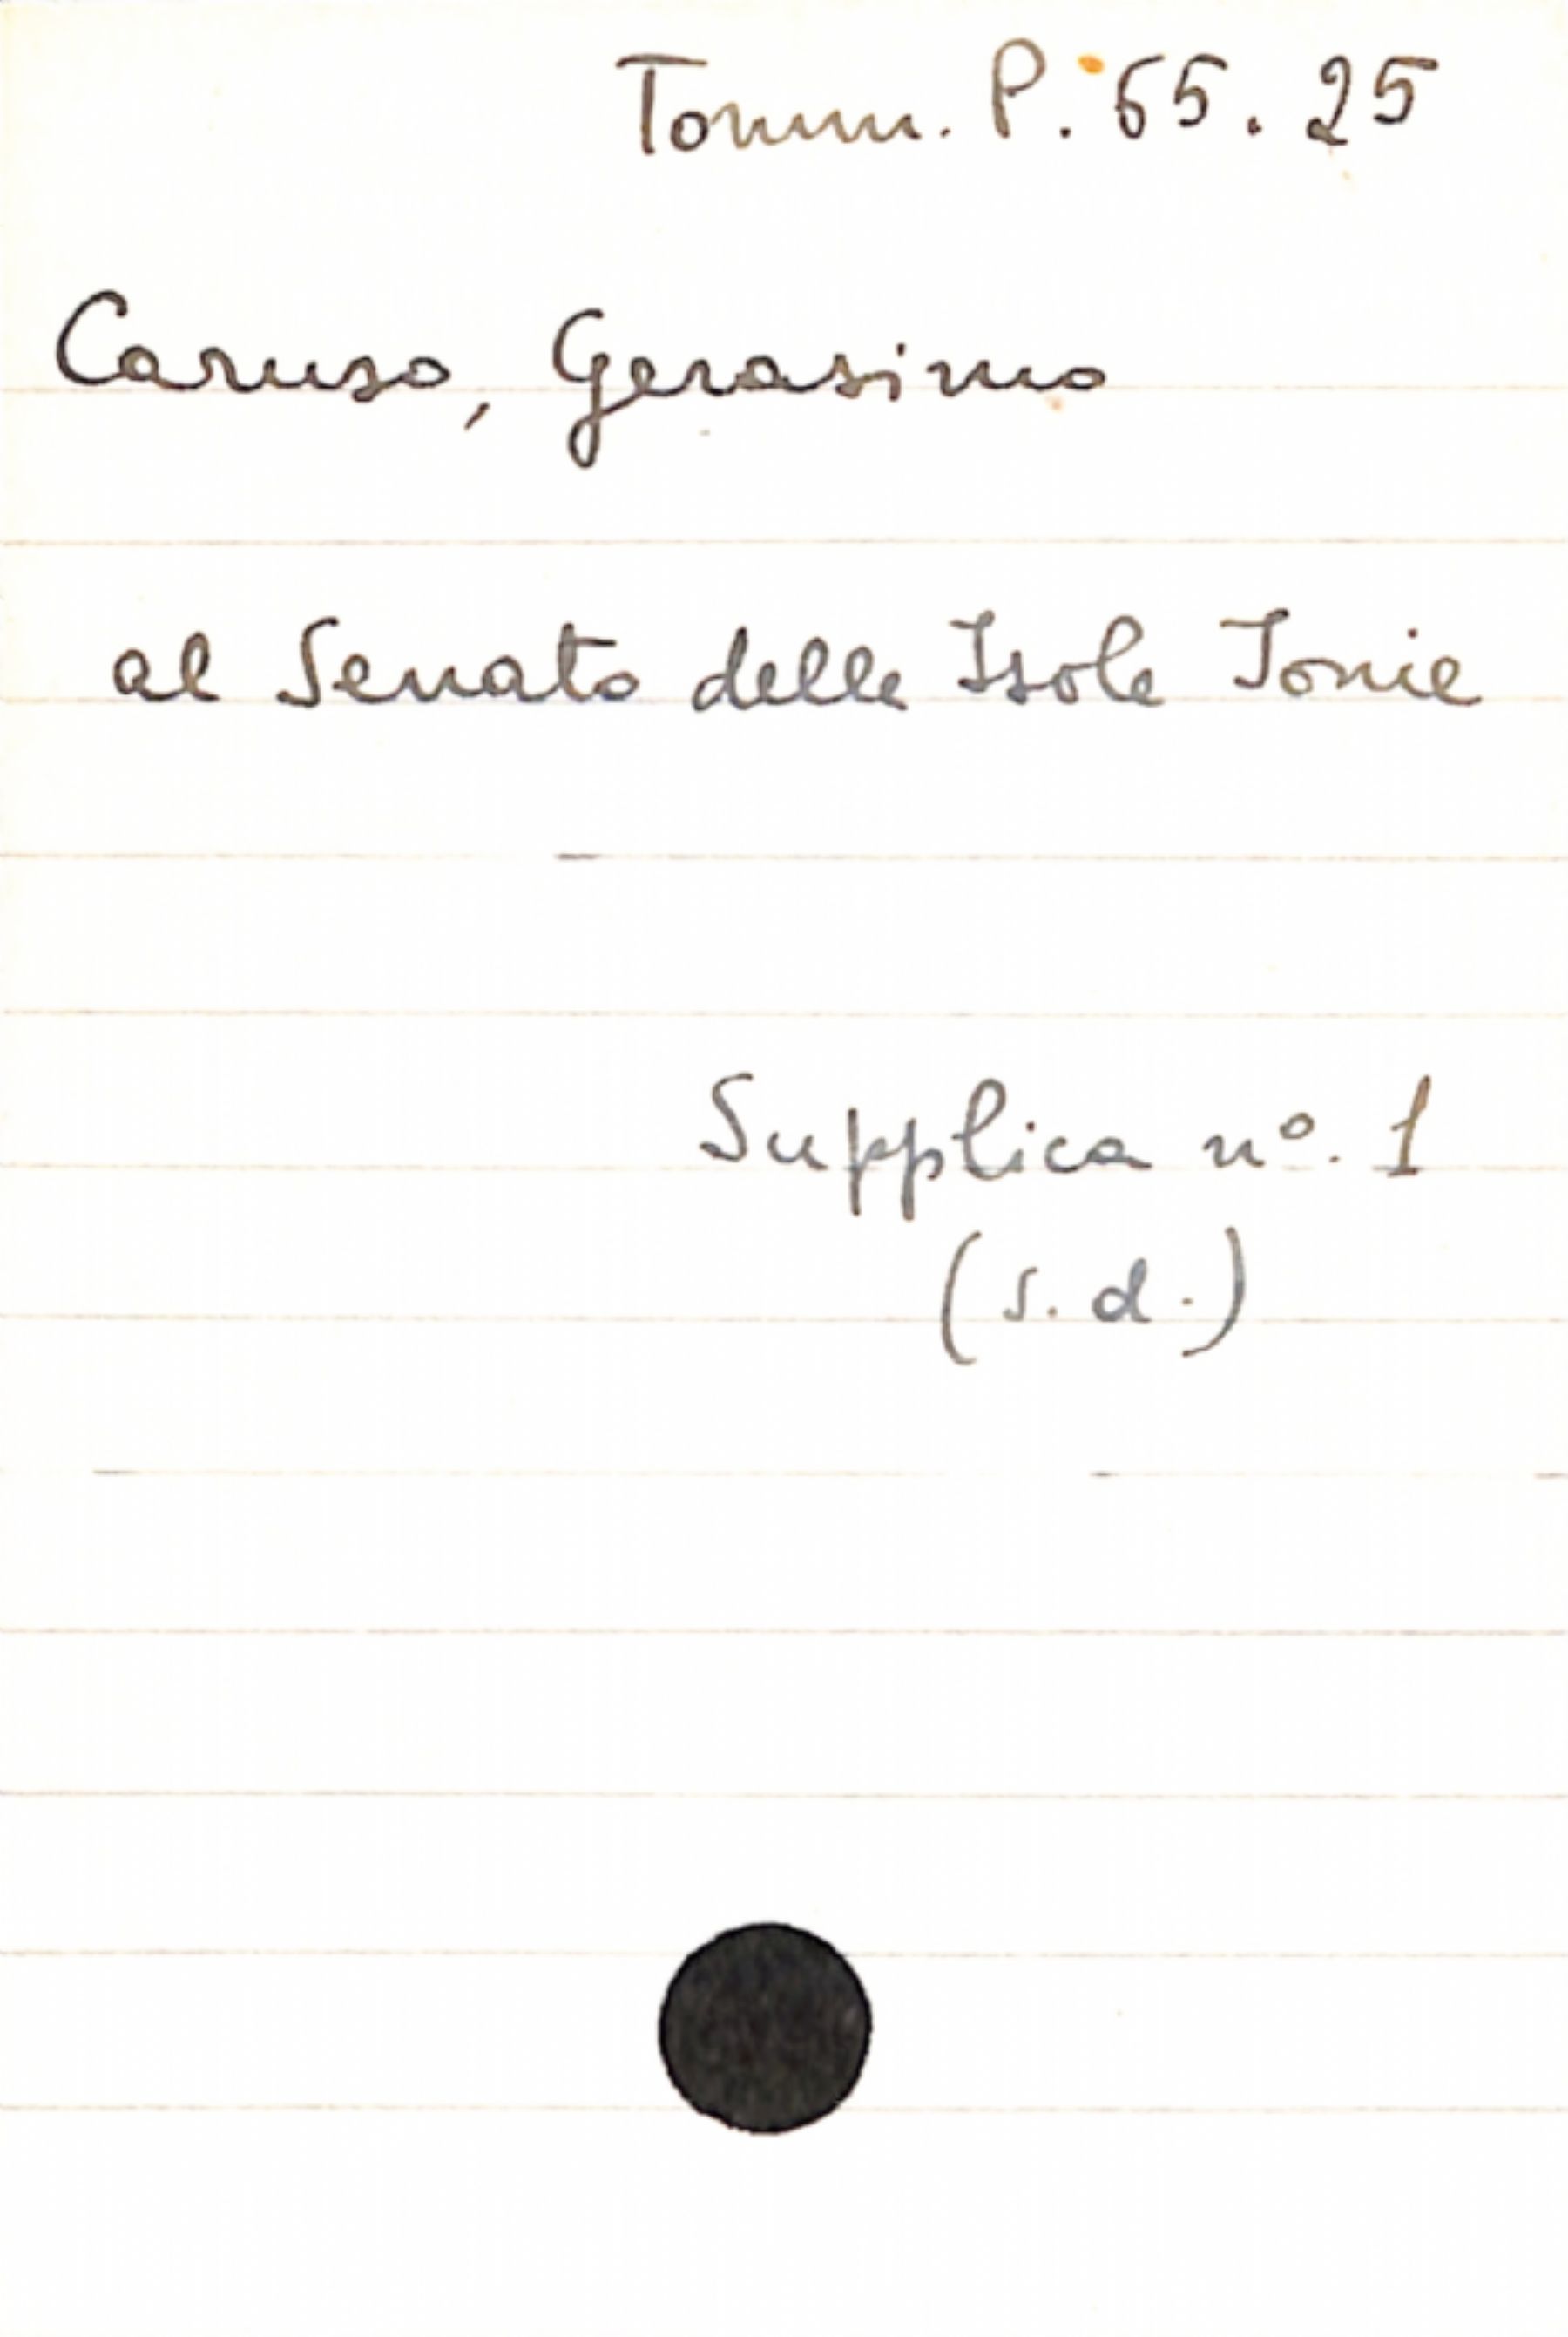 Tomm. P. 65. 25
Caruso, Gerasimo
al Senato delle Isole Jonie
Supplica nº. 1
(s. d.)